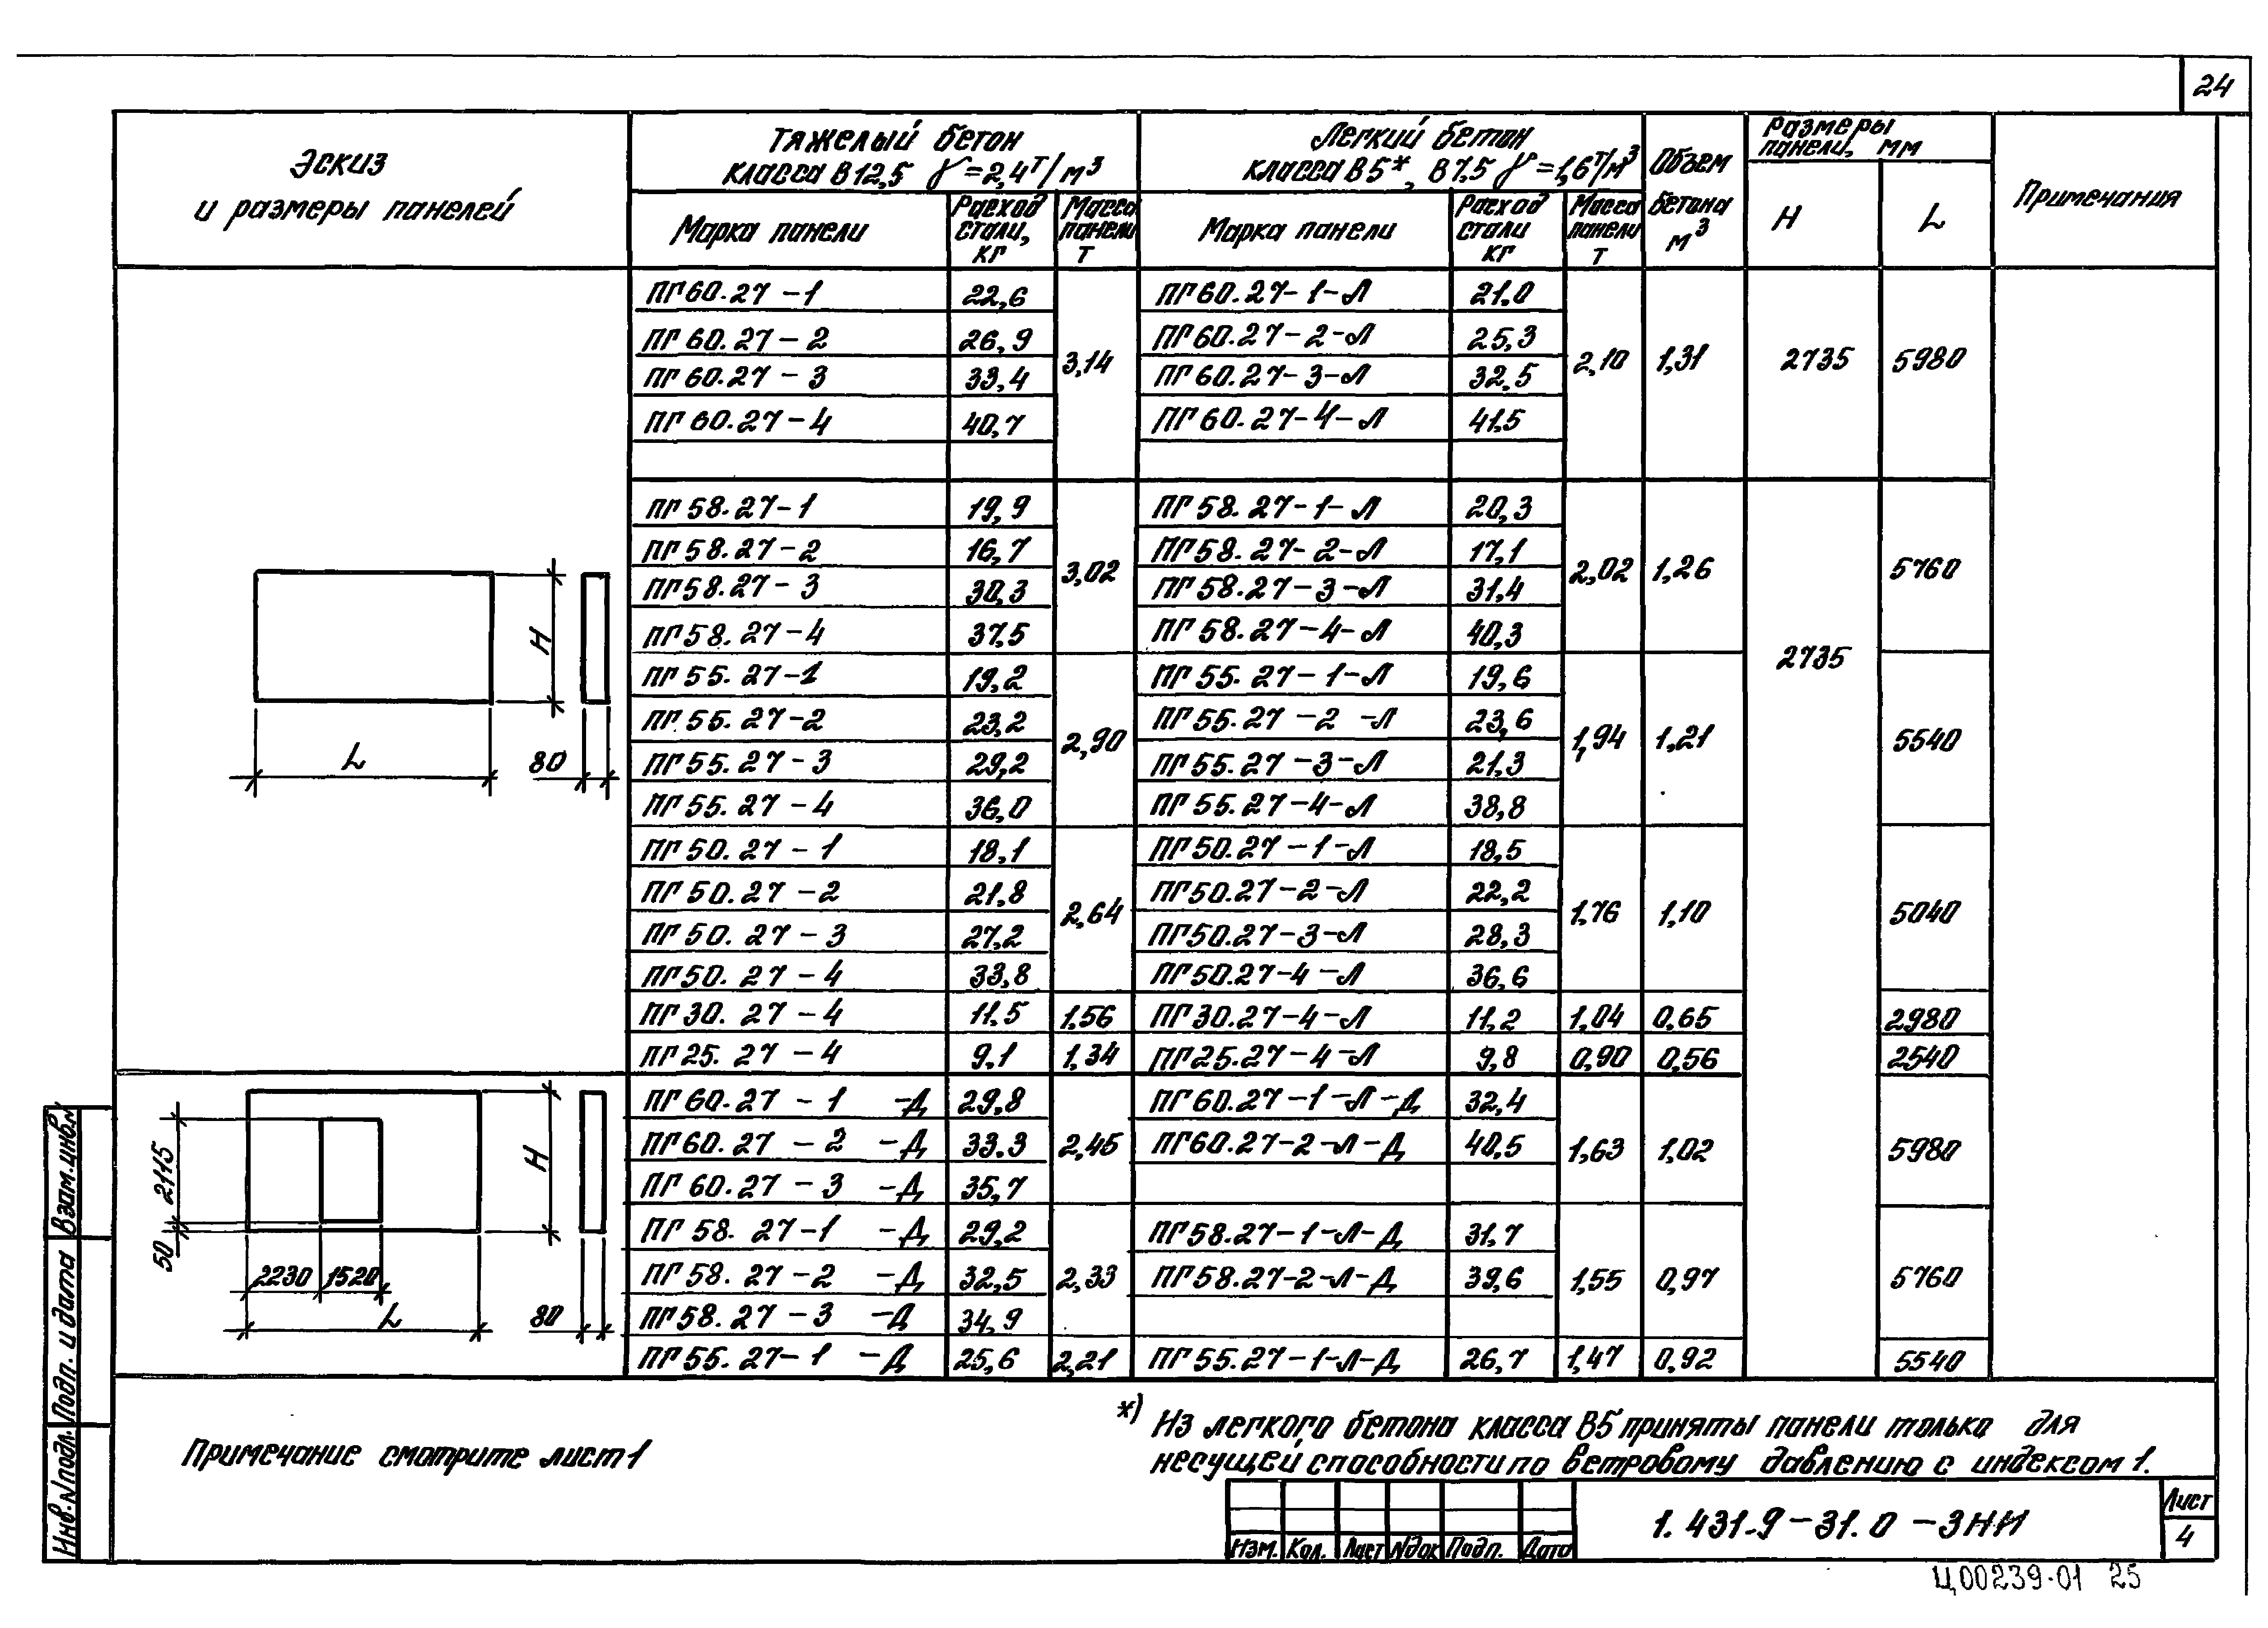 24
Эскиз
и размеры панелей
Тяжелый бетон
класса В12,5 γ=2,4т/м³
Легкий бетон
класса В5*, В7,5 γ=1,6т/м³
Объем
бетона
м³
Размеры
панели, мм
Примечания
Марка панели
Расход
стали,
кг
Масса
панели
т
Марка панели
Расход
стали
кг
Масса
панели
т
H
L
ПГ60.27-1 22,6 ПГ60.27-1-Л 21.0
ПГ60.27-2 26,9 ПГ60.27-2-Л 25,3
3,14 2,10 1,31 2735 5980
ПГ60.27-3 33,4 ПГ60.27-3-Л 32.5
ПГ60.27-4 40,7 ПГ60.27-4-Л 41,5
ПГ58.27-1 19,9 ПГ58.27-1-Л 20,3
ПГ58.27-2 16,7 ПГ58.27-2-Л 17,1
3,02 2,02 1,26 5760
ПГ58.27-3 30,3 ПГ58.27-3-Л 31,4
ПГ58.27-4 37,5 ПГ58.27-4-Л 40,3
2735
ПГ55.27-1 19,2 ПГ55.27-1-Л 19,6
ПГ55.27-2 23,2 ПГ55.27-2-Л 23,6
2,90 1,94 1,21 5540
ПГ55.27-3 29,2 ПГ55.27-3-Л 21,3
ПГ55.27-4 36,0 ПГ55.27-4-Л 38,8
ПГ50.27-1 18,1 ПГ50.27-1-Л 18,5
ПГ50.27-2 21,8 ПГ50.27-2-Л 22,2
2,64 1,76 1,10 5040
ПГ50.27-3 27,2 ПГ50.27-3-Л 28,3
ПГ50.27-4 33,8 ПГ50.27-4-Л 36,6
ПГ30.27-4 11,5 1,56 ПГ30.27-4-Л 11,2 1,04 0,65 2980
ПГ25.27-4 9,1 1,34 ПГ25.27-4-Л 9,8 0,90 0,56 2540
ПГ60.27-1-Д 29,8 ПГ60.27-1-Л-Д 32,4
ПГ60.27-2-Д 33.3 2,45 ПГ60.27-2-Л-Д 40,5 1,63 1,02 5980
ПГ60.27-3-Д 35,7
ПГ58.27-1-Д 29,2 ПГ58.27-1-Л-Д 31,7
ПГ58.27-2-Д 32,5 2,33 ПГ58.27-2-Л-Д 39,6 1,55 0,97 5760
ПГ58.27-3-Д 34,9
ПГ55.27-1-Д 25,6 2,21 ПГ55.27-1-Л-Д 26,7 1,47 0,92 5540
H
L
80
2115
50
2230
1520
L
H
80
Примечание смотрите лист 1
*) Из легкого бетона класса В5 приняты панели только для
несущей способности по ветровому давлению с индексом 1.
Изм. Кол. Лист №док Подп. Дата
1.431.9-31.0-3НИ
Лист
4
Взам.инв.№
Подп. и дата
Инв.№подл.
Ц00239-01 25